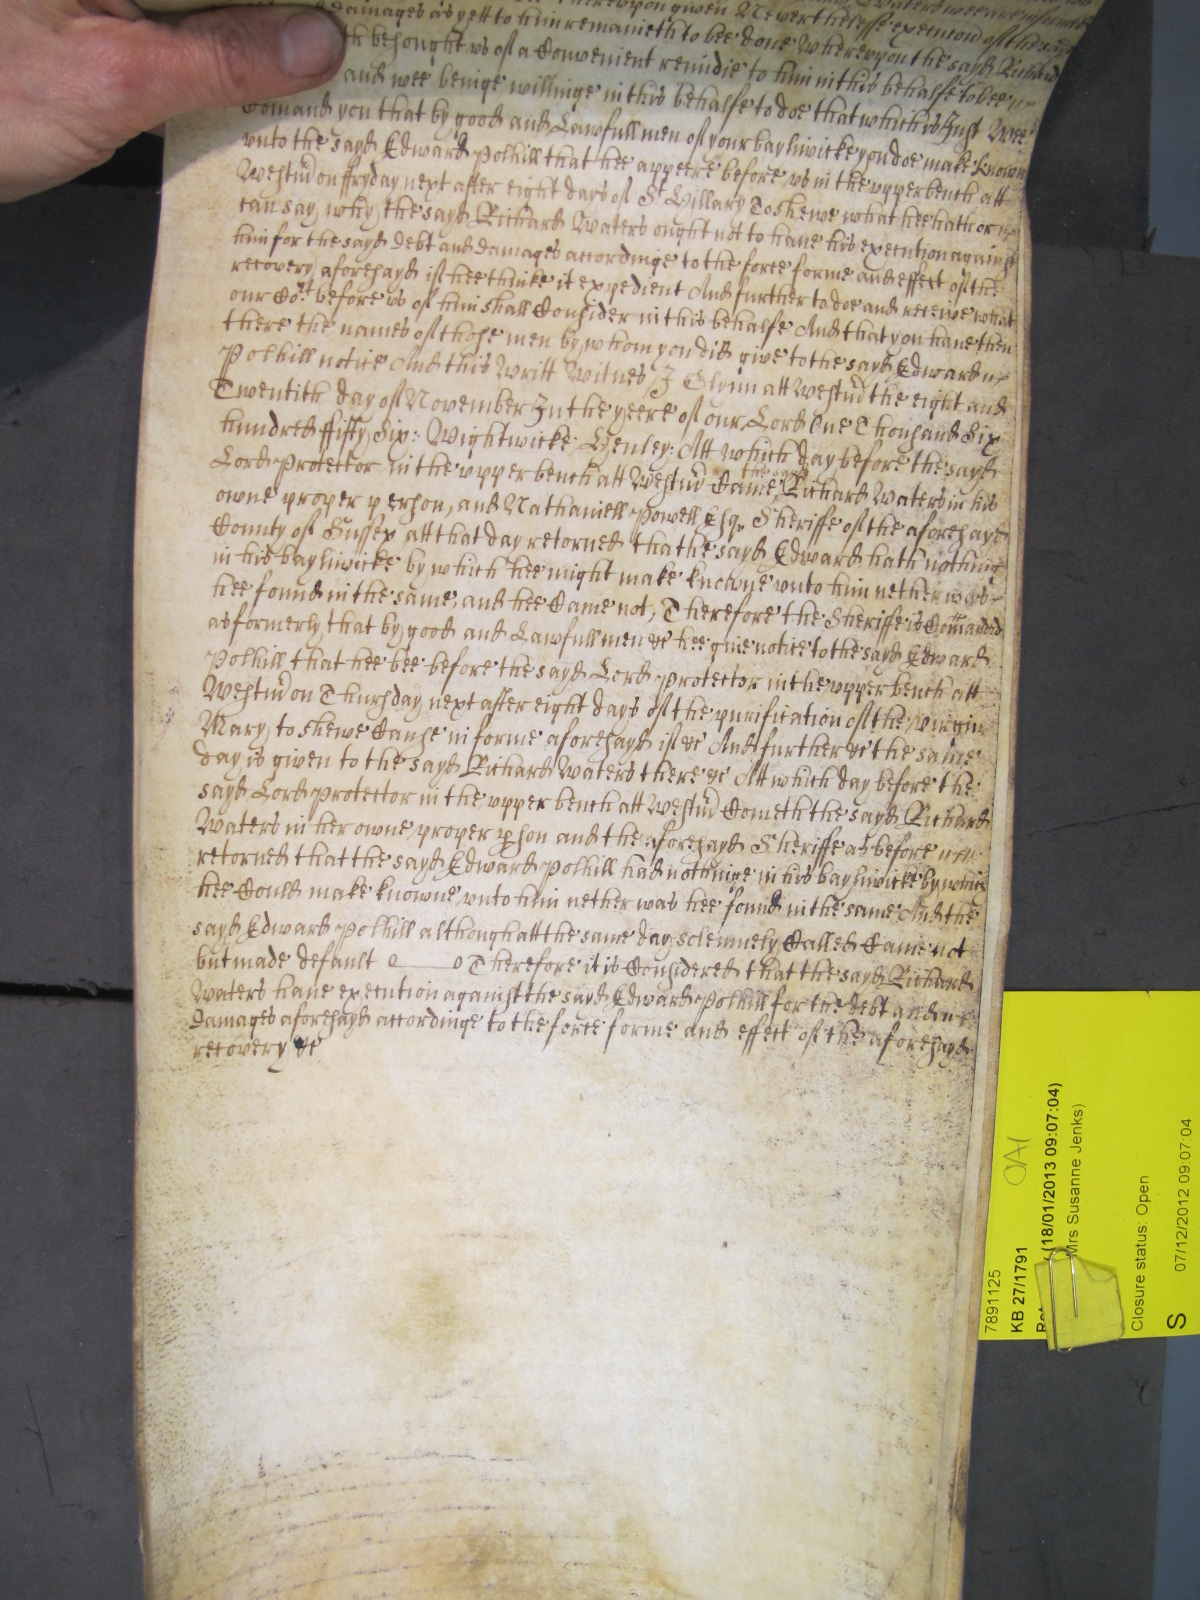 damages as yett to him remaineth to bee done Whereupon the sayd Richard
hath besought us of a Convenient remidie to him in this behalfe to bee
and wee beinge willinge in this behalfe to doe that which is Just Wee
Comand you that by good and Lawfull men of your bayliwicke you doe make knowne
unto the sayd Edward Polhill that hee appeere before us in the upper bench att
Westm̃ on ffryday next after eight days of St Hillary To shewe what hee hath or
can say why the sayd Richard Waters ought not to have his execution against
him for the sayd debt and damages accordinge to the force forme and effect of the
recovery aforesayd if hee thinke it expedient And further to doe and receive what
our Cort before us of him shall Consider in this behalfe And that you have then
there the names of those men by whom you did give to the sayd Edward
Polhill notice And this Writt Witnes J Glynn att Westm̃ the eight and
Twentith day of November In the yeere of our Lord One Thousand Six
hundred ffifty Six: Wightwicke: Henley: Att which day before the sayd
Lord Protector in the upper bench att Westm̃ Came the sayd Richard Waters in his
owne proper person, and Nathaniell Powell Esqr Sheriffe of the aforesayd
County of Sussex att that day retorned that the sayd Edward hath nothing
in his bayliwicke by which hee might make knowne unto him nether was
hee found in the same, and hee Came not, Therefore the Sheriffe is Comanded
as formerly, that by good and Lawfull men &c hee give notice to the sayd Edward
Polhill that hee bee before the sayd Lord Protector in the upper bench att
Westm̃ on Thursday next after eight days of the purification of the virgin
Mary, to shewe Cause in forme aforesayd if &c And further &c the same
day is given to the sayd Richard Waters there &c Att which day before the
sayd Lord Protector in the upper bench att Westm̃ Cometh the sayd Richard
Waters in her owne proper pson and the aforesayd Sheriffe as before
retorned that the sayd Edward Polhill had nothinge in his bayliwicke by which
hee Could make knowne unto him nether was hee found in the same And the
sayd Edward Polhill although att the same day solemnely Called Came not
but made default Therefore it is Considered that the sayd Richard
Waters have execution against the sayd Edward Polhill for the debt and
damages aforesayd accordinge to the force forme and effect of the aforesayd
recovery &c
7891125 OA1
KB 27/1791
(18/01/2013 09:07:04)
Mrs Susanne Jenks)
Closure status: Open
S 07/12/2012 09:07:04